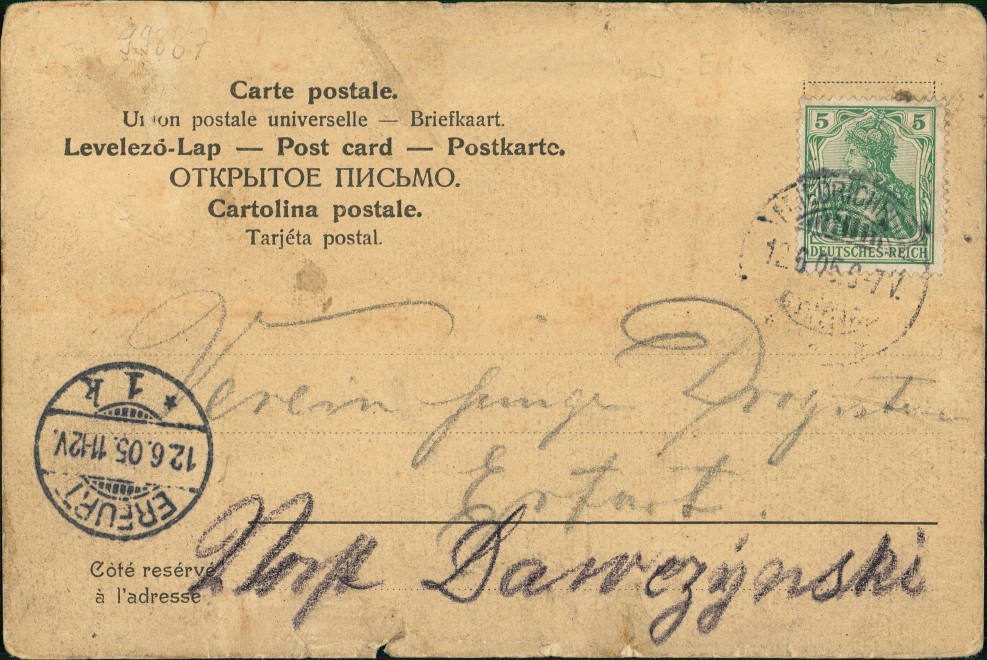 99887
Carte postale.
Union postale universelle — Briefkaart.
Levelező-Lap — Post card — Postkarte.
ОТКРЫТОЕ ПИСЬМО.
Cartolina postale.
Tarjéta postal.
5 5
DEUTSCHES-REICH
12.6.05.6-7V.
Verein junger Drogisten
Erfurt.
* 1 k
12.6.05.11-12V.
ERFURT
Dawczýnski
Côté resérvé
à l'adresse